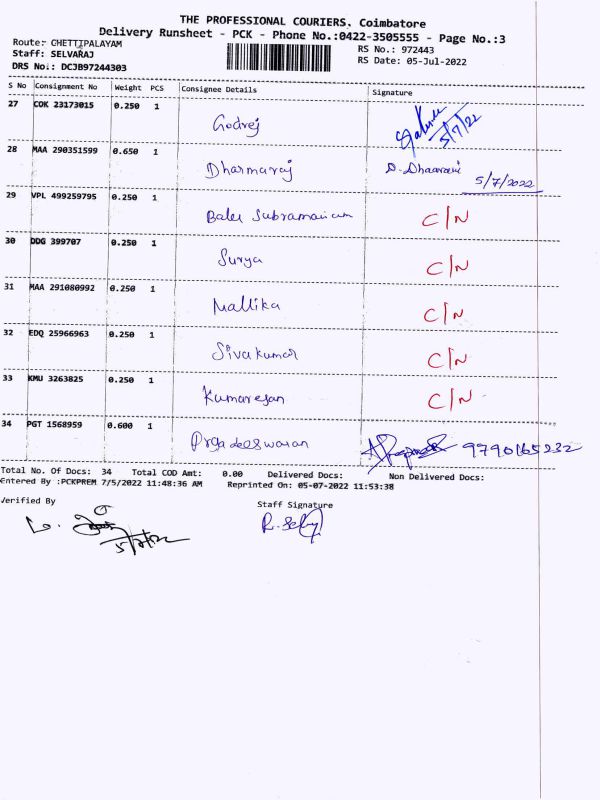 THE PROFESSIONAL COURIERS. Coimbatore
Delivery Runsheet - PCK - Phone No.:0422-3505555 - Page No.:3
Route: CHETTIPALAYAM RS No.: 972443
Staff: SELVARAJ RS Date: 05-Jul-2022
DRS No.: DCJB97244303
S No Consignment No Weight PCS Consignee Details Signature
27 COK 23173015 0.250 1 Godrej 5/7/22
28 MAA 290351599 0.650 1 Dharmaraj D. Dhaarani 5/7/2022
29 VPL 499259795 0.250 1 Bala Subramanian C/N
30 DDG 399707 0.250 1 Surya C/N
31 MAA 291080992 0.250 1 Mallika C/N
32 EDQ 25966963 0.250 1 Sivakumar C/N
33 KMU 3263825 0.250 1 Kumaresan C/N
34 PGT 1568959 0.600 1 9790165232
Total No. Of Docs: 34 Total COD Amt: 0.00 Delivered Docs: Non Delivered Docs:
Entered By :PCKPREM 7/5/2022 11:48:36 AM Reprinted On: 05-07-2022 11:53:38
Verified By Staff Signature
5/7/22